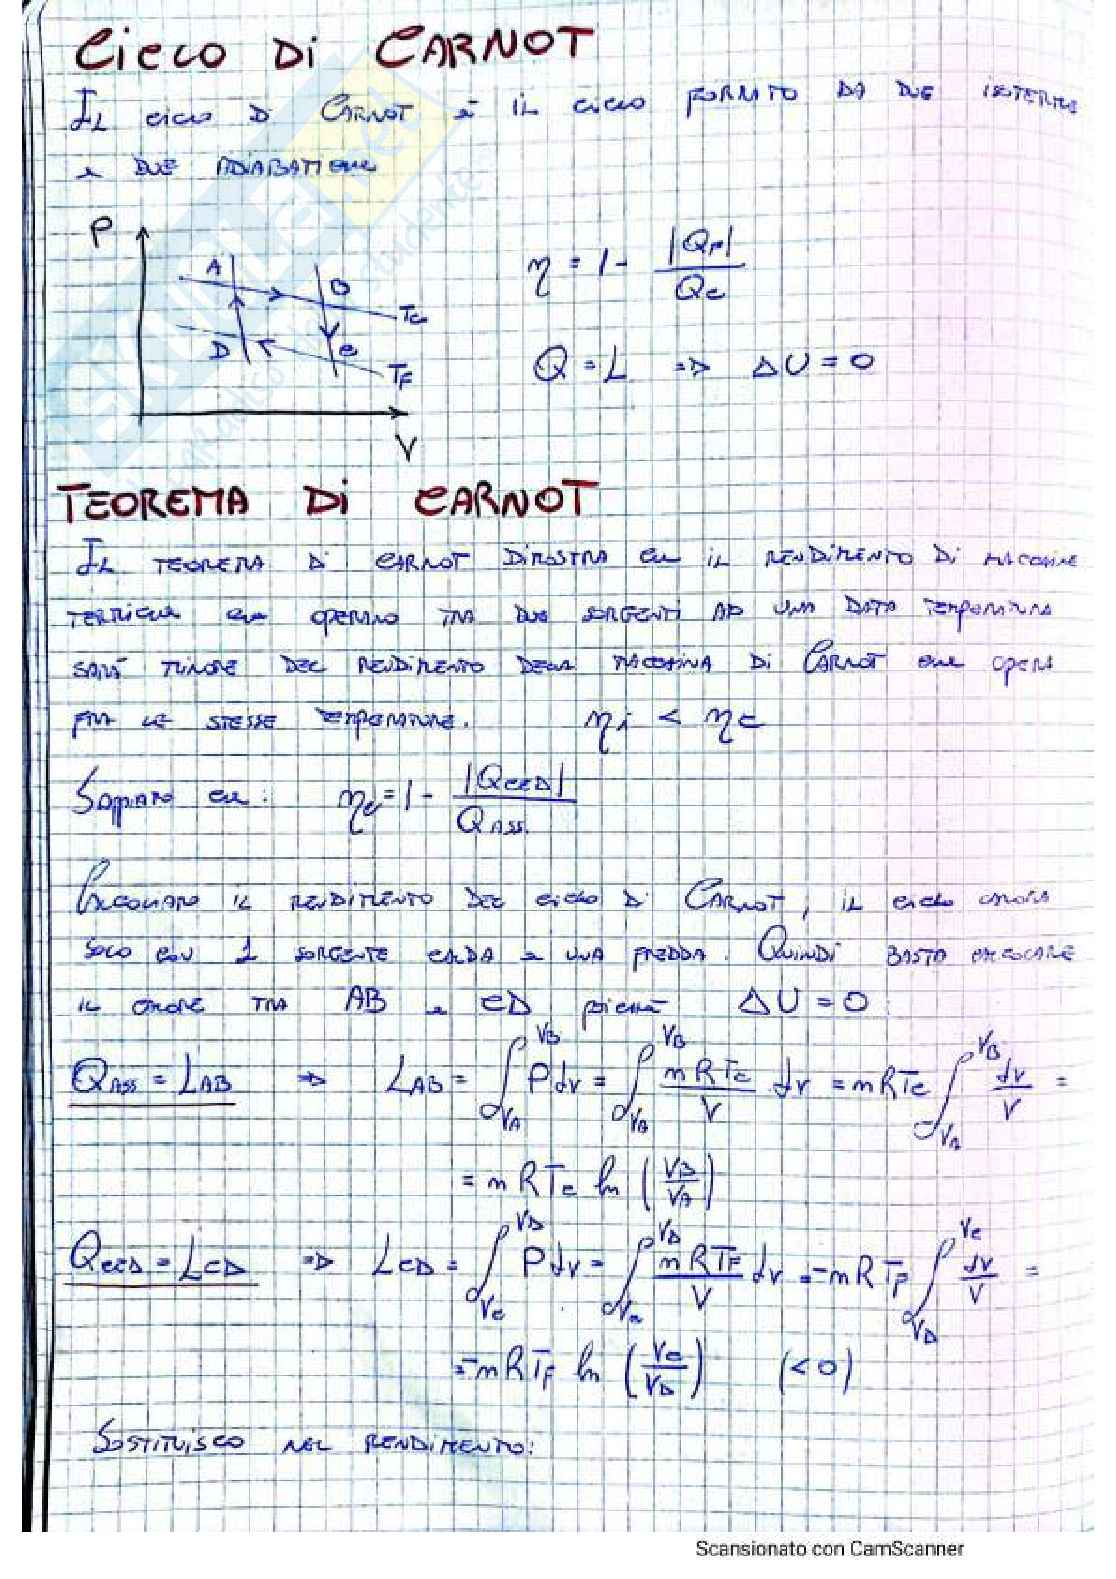 CICLO DI CARNOT
IL CICLO DI CARNOT È IL CICLO FORMATO DA DUE ISOTERME
E DUE ADIABATICHE
P
A
B
Tc
D
C
TF
V
η = 1 - |QF| / Qc
Q = L => ΔU = 0
TEOREMA DI CARNOT
IL TEOREMA DI CARNOT DIMOSTRA CHE IL RENDIMENTO DI MACCHINE
TERMICHE CHE OPERANO TRA DUE SORGENTI AD UNA DATA TEMPERATURA
SARÀ MINORE DEL RENDIMENTO DELLA MACCHINA DI CARNOT CHE OPERA
FRA LE STESSE TEMPERATURE. ηi < ηc
SAPPIAMO CHE: ηc = 1 - |QCED| / QASS.
CALCOLIAMO IL RENDIMENTO DEL CICLO DI CARNOT, IL CICLO LAVORA
SOLO CON 1 SORGENTE CALDA E UNA FREDDA. QUINDI BASTA CALCOLARE
IL CALORE TRA AB E CD POICHÉ ΔU = 0
QASS = LAB => LAB = ∫VA^VB P dv = ∫VA^VB nRTc/V dv = nRTc ∫VA^VB dv/V =
= nRTc ln (VB/VA)
QCED = LCD => LCD = ∫VC^VD P dv = ∫VC^VD nRTF/V dv = -nRTF ∫VD^VC dv/V =
= -nRTF ln (VC/VD) (<0)
SOSTITUISCO NEL RENDIMENTO:
Scansionato con CamScanner